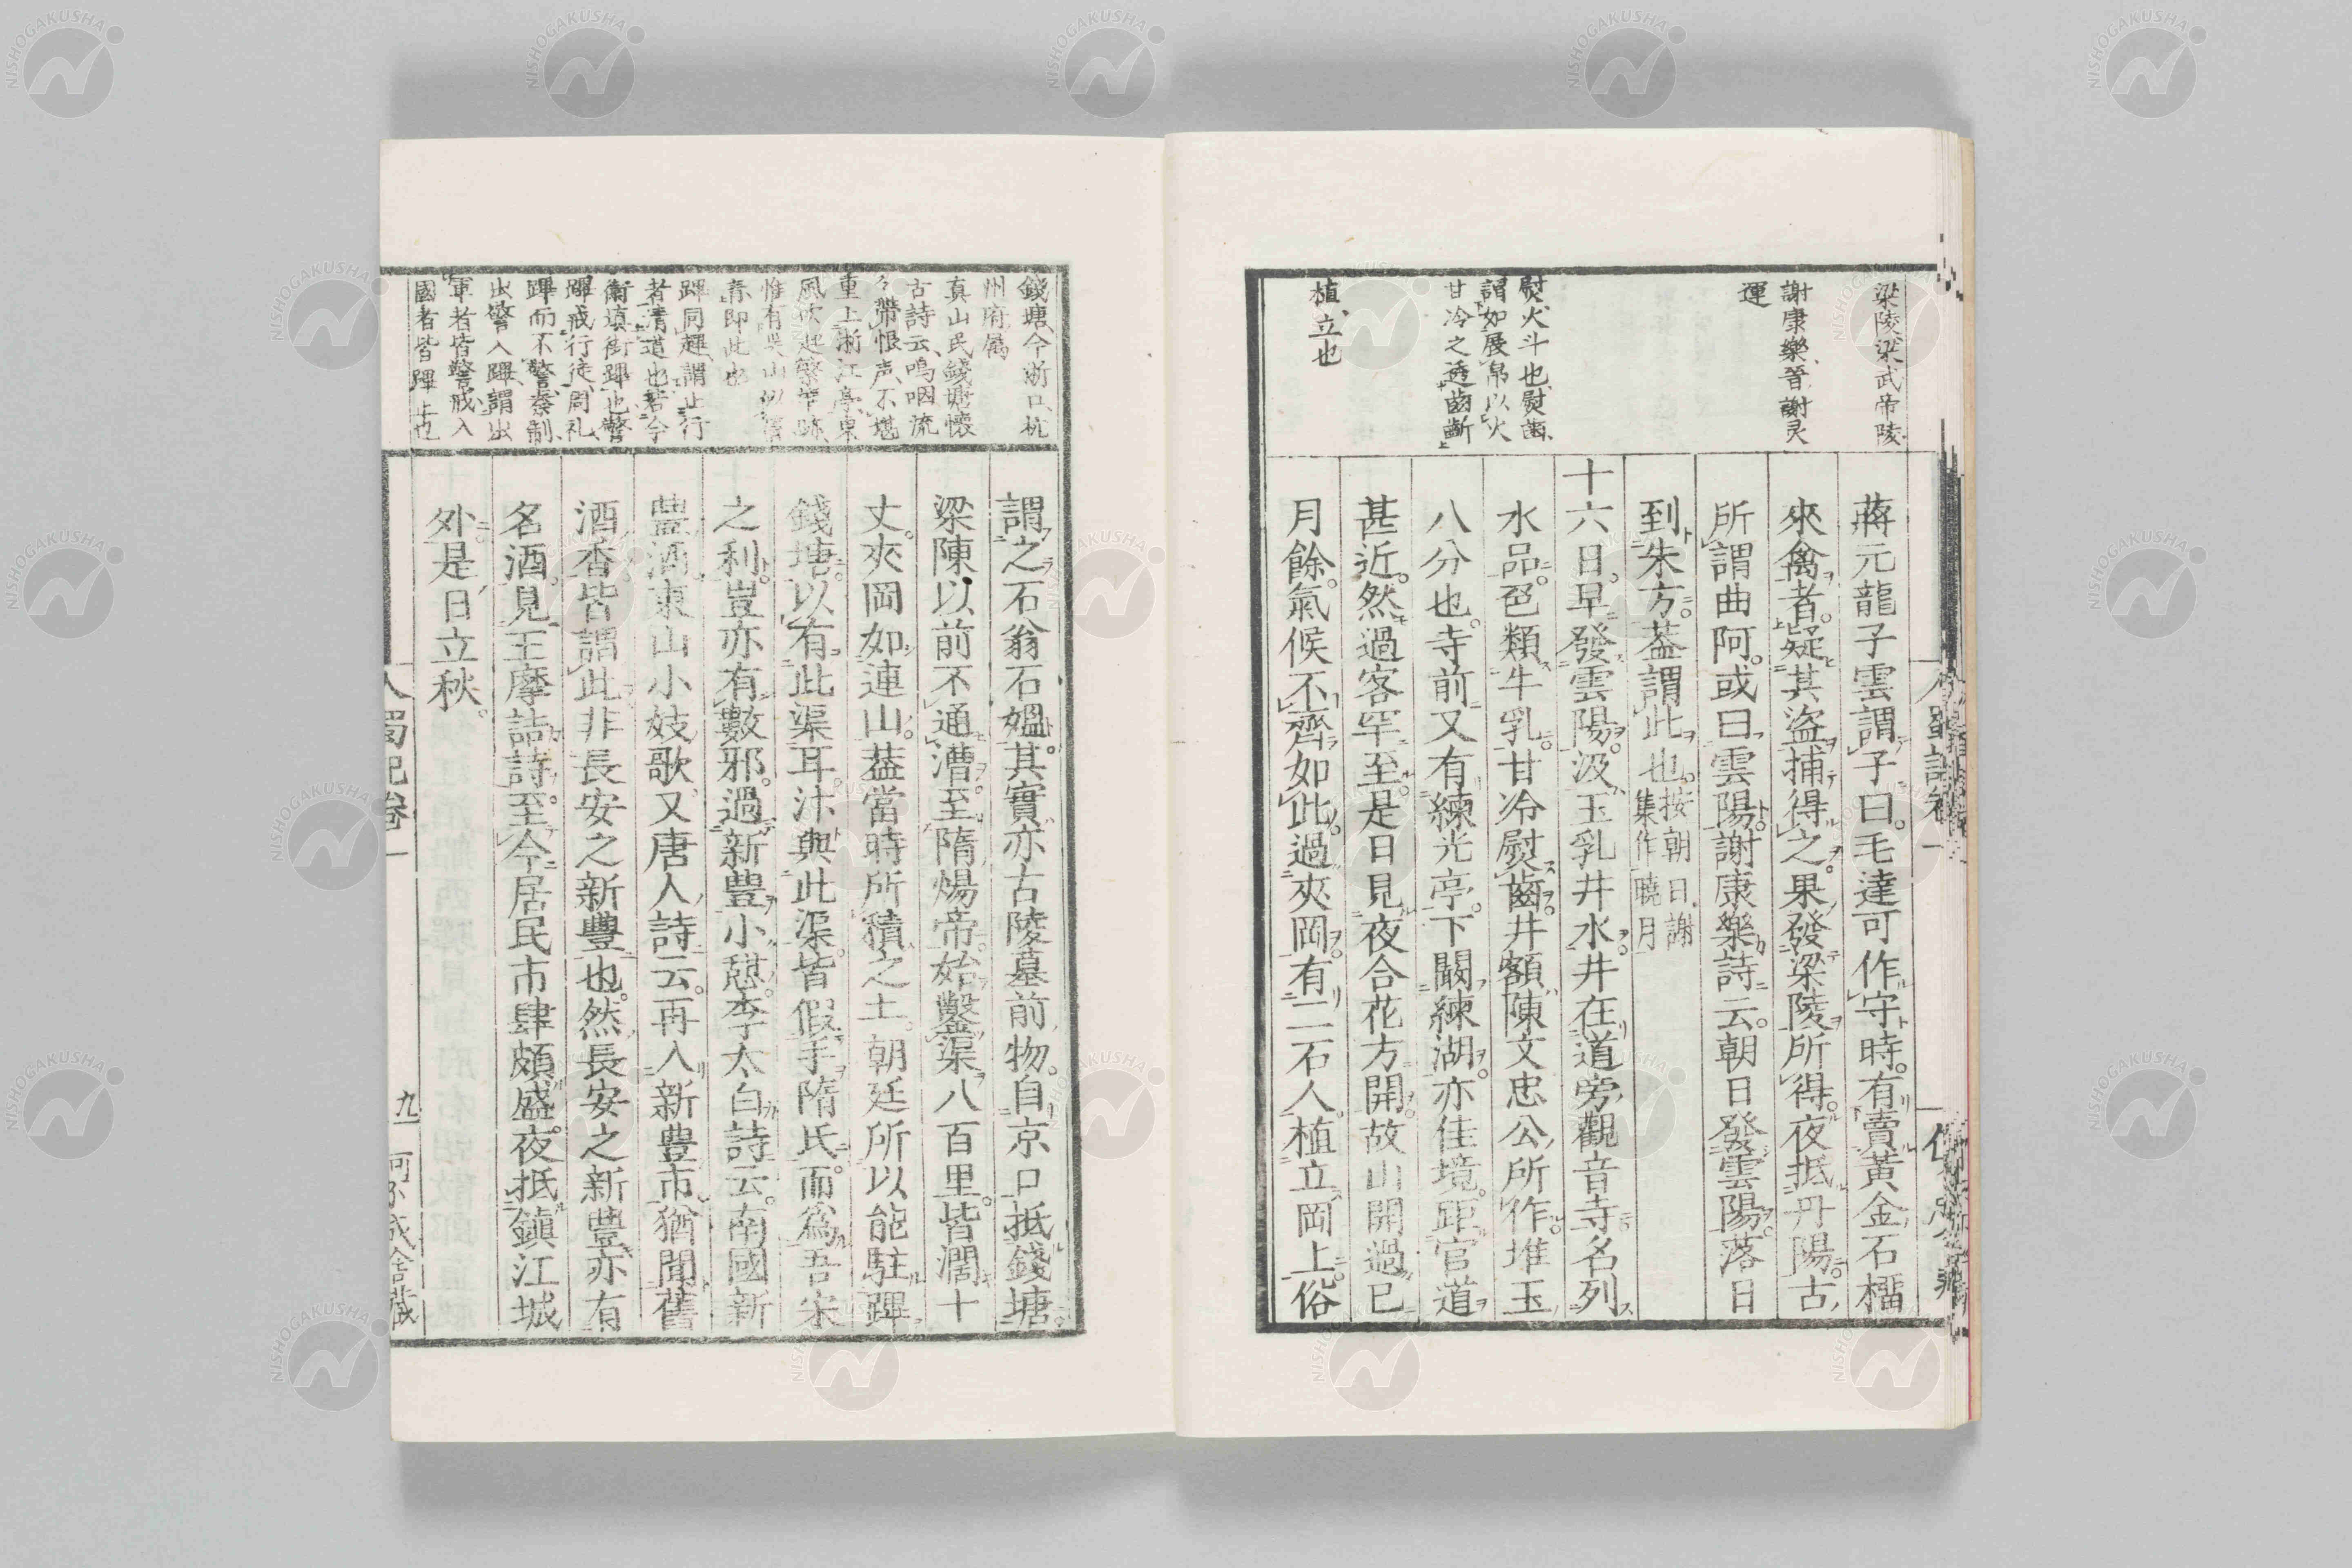 梁陵、梁武帝陵
謝康樂、晉謝灵
運
熨、火斗也、熨齒、
謂如展帛以火
甘冷之透齒齗
植、立也
蔣元龍子雲謂子曰。毛達可作守時。有賣黃金石榴
來禽者。疑其盜捕得之。果發梁陵所得。夜抵丹陽。古
所謂曲阿。或曰雲陽。謝康樂詩云。朝日發雲陽。落日
到朱方。葢謂此也。按朝日、謝集作曉月
十六日。早發雲陽。汲玉乳井水。井在道旁觀音寺。名列
水品。色類牛乳。甘冷熨齒。井額陳文忠公所作。堆玉
八分也。寺前又有練光亭。下闞練湖。亦佳境。距官道
甚近。然過客罕至。是日見夜合花方開。故山開過已
月餘。氣候不齊如此。過夾岡。有二石人。植立岡上。俗
錢塘、今浙口、杭
州府属
真山民錢塘懷
古詩云、嗚咽流
々帶恨声、不堪
重上浙江亭、東
風吹起
惟有吳山似舊
青、即此也
蹕同趩、謂止行
者清道也、若今
衞填街蹕也、警
蹕戒行徒、周礼、
蹕而不警、秦制、
出警入蹕、謂出
軍者皆警戒、入
國者皆蹕止也
謂之石翁石媼。其實亦古陵墓前物。自京口抵錢塘。
梁陳以前不通漕。至隋煬帝。始鑿渠八百里。皆濶十
丈。夾岡如連山。葢當時所積之土。朝廷所以能駐蹕
錢塘。以有此渠耳。汴與此渠。皆假手隋氏。而爲吾宋
之利。豈亦有數邪。過新豐小憇。李太白詩云。南國新
豐酒。東山小妓歌。又唐人詩云。再入新豐市。猶聞舊
酒香。皆謂此非長安之新豐也。然長安之新豐。亦有
名酒。見王摩詰詩。至今居民市肆頗盛。夜抵鎮江城
外。是日立秋。
蜀記卷一
九
NISHOGAKUSHA